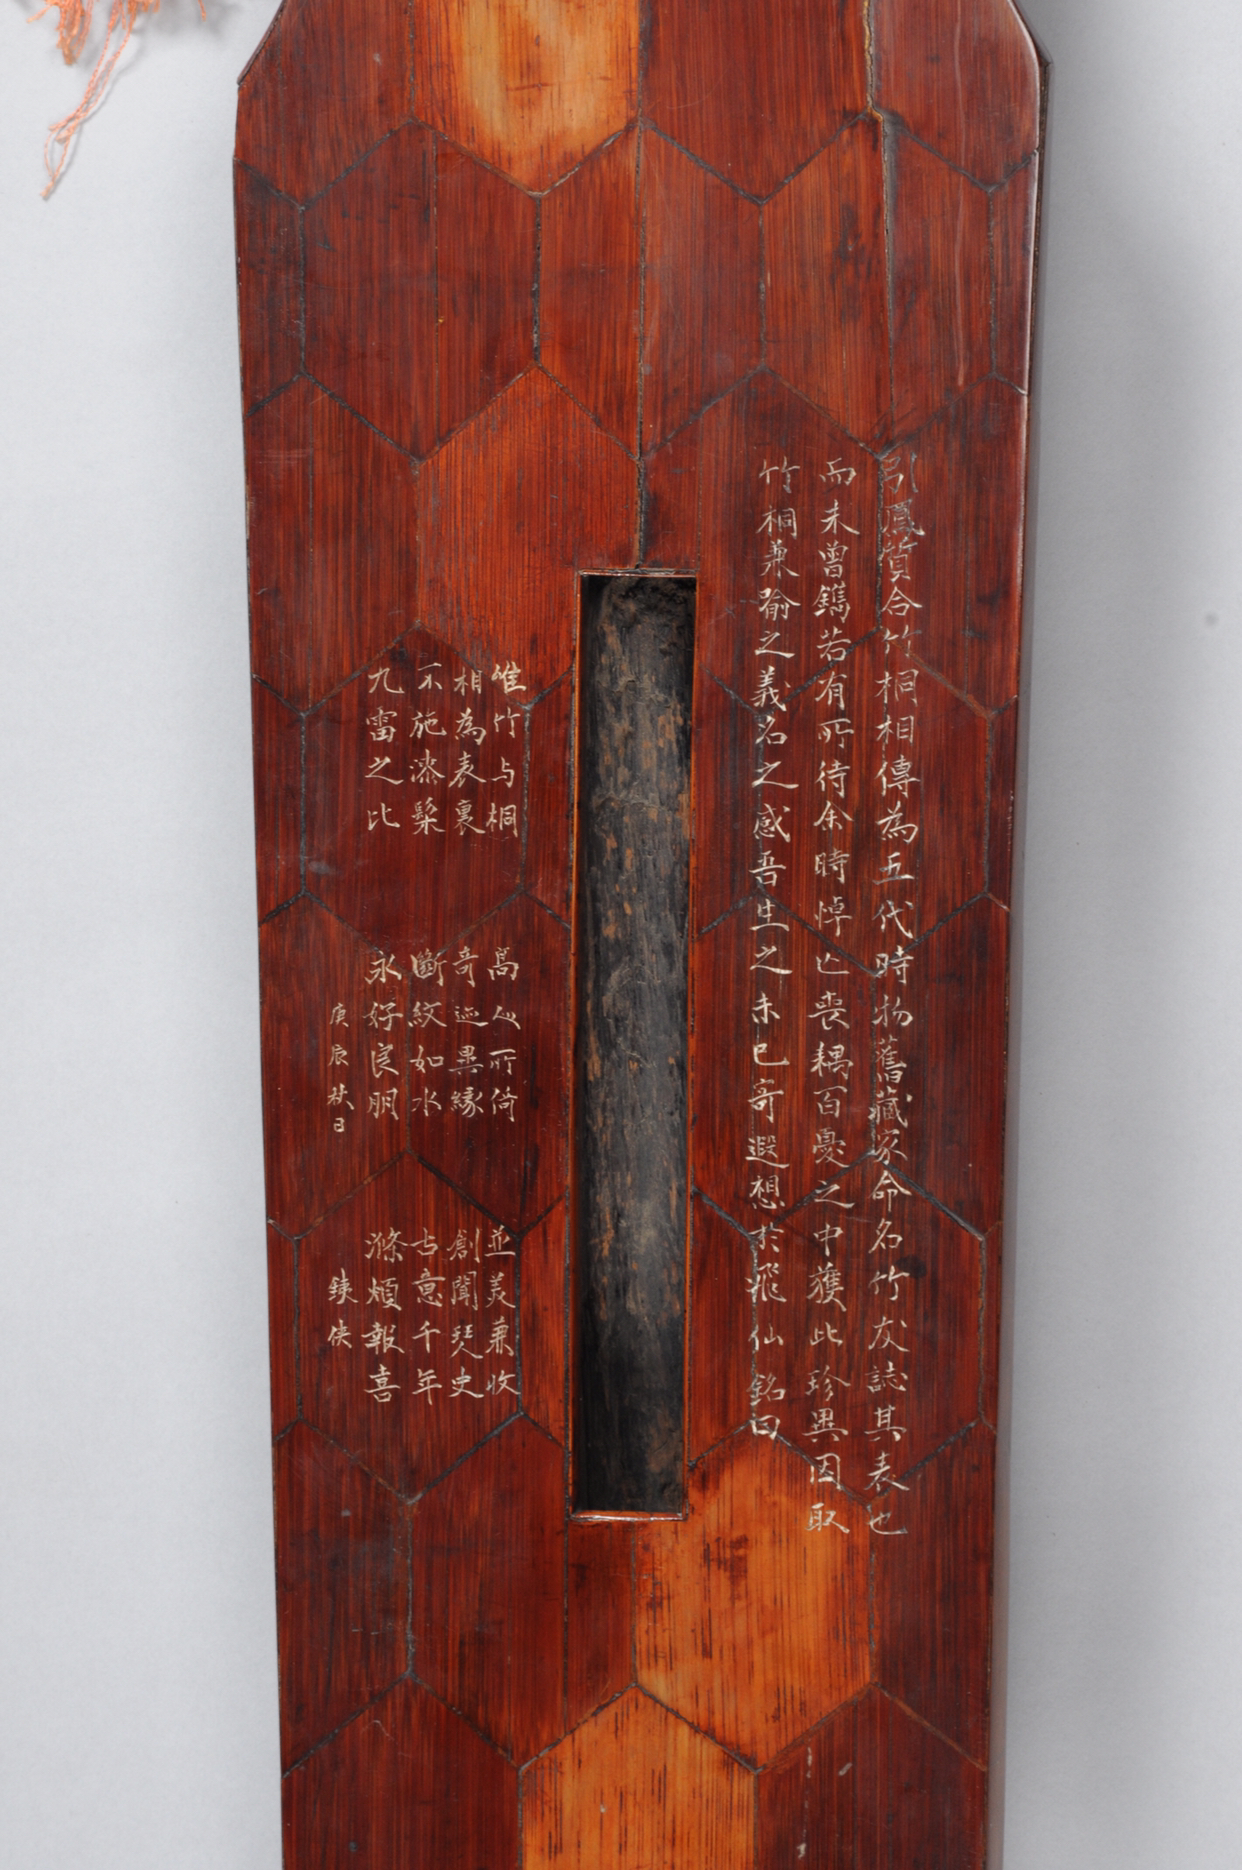 引鳳質合竹桐相傳為五代時物舊藏家命名竹友誌其表也
而未曾鐫若有所待余時悼亡喪耦百憂之中獲此珍異因取
竹桐兼喻之義名之感吾生之未已寄遐想於飛仙銘曰
惟竹与桐 高人所倚 並美兼收
相為表裏 奇迹異緣 創聞琹史
不施漆髹 斷紋如水 古意千年
九雷之比 永好良朋 滌煩報喜
庚辰秋日 銕俠